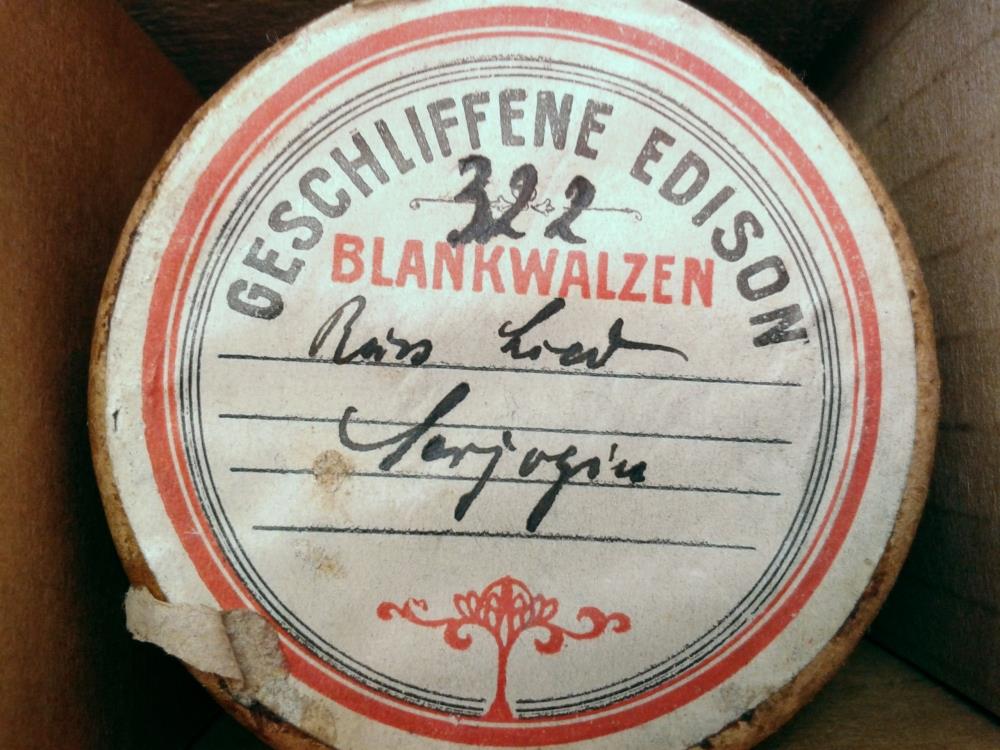 GESCHLIFFENE EDISON
322
BLANKWALZEN
Russ Lied
Serjogin